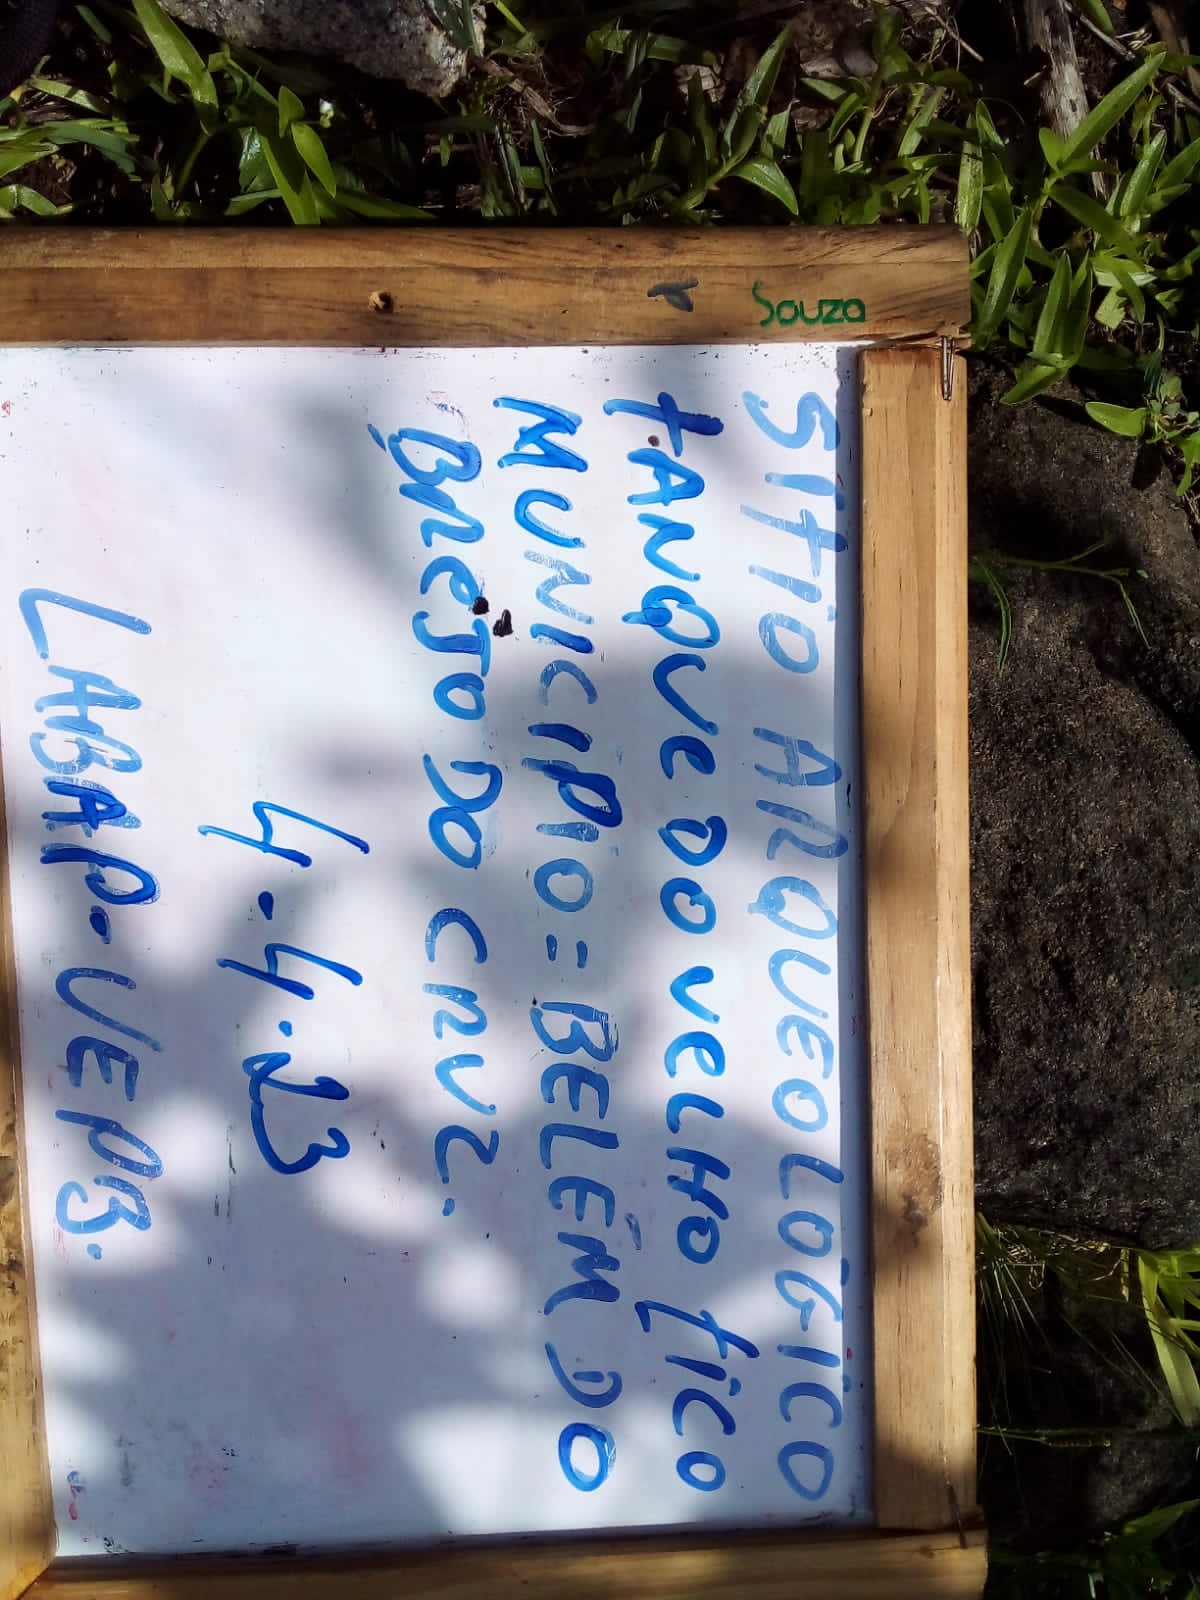 Souza
SÍTIO ARQUEOLÓGICO
TANQUE DO VELHO TICO
MUNICIPIO = BELÉM DO
BREJO DO CRUZ.
4.4.23
LABAP. UEPB.